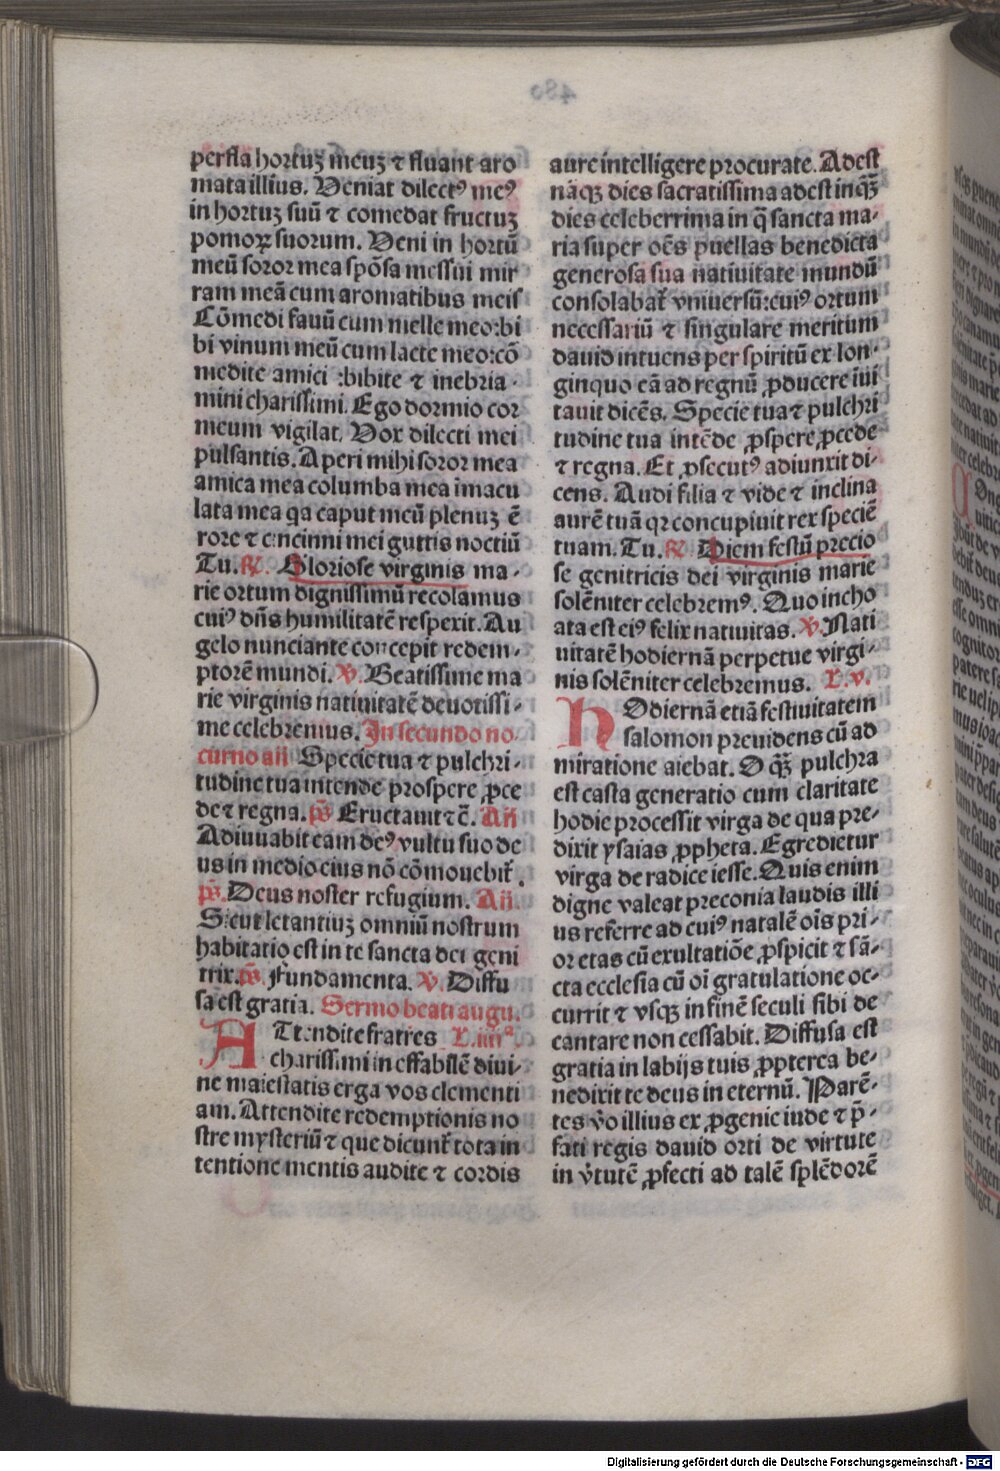 perfla hortuꝫ meuꝫ ⁊ fluant aro
mata illius. Veniat dilectꝰ meꝰ
in hortuꝫ suū ⁊ comedat fructuꝫ
pomoꝝ suorum. Veni in hortū
meū soror mea spōsa messui mir
ram meā cum aromatibus meis
Cōmedi fauū cum melle meo:bi
bi vinum meū cum lacte meo:cō
medite amici :bibite ⁊ inebria-
mini charissimi. Ego dormio cor
meum vigilat. Vox dilecti mei
pulsantis. Aperi mihi soror mea
amica mea columba mea īmacu
lata mea qa caput meū plenuꝫ ē
rore ⁊ cincinni mei guttis noctiū
Tu. ℞. Gloriose virginis ma-
rie ortum dignissimū recolamus
cuiꝰ dn̄s humilitatē respexit. An
gelo nunciante concepit redem-
ptorē mundi. ℣. Beatissime ma
rie virginis natiuitatē deuotissi-
me celebremus. In secundo no-
curno añ Specie tua ⁊ pulchri-
tudine tua intende prospere ꝓce
de ⁊ regna. ps̄ Eructauit ⁊c̄. Añ
Adiuuabit eam deꝰ vultu suo de
us in medio eius nō cōmouebit̄.
ps̄. Deus noster refugium. Añ.
Sicut letantiuꝫ omniū nostrum
habitatio est in te sancta dei geni
trix. ps̄. Fundamenta. ℣. Diffu
sa est gratia. Sermo beati augu.
ATtendite fratres L.iiiiᵃ.
charissimi in effabilē diui-
ne maiestatis erga vos clementi
am. Attendite redemptionis no
stre mysteriū ⁊ que dicunt̄ tota in
tentione mentis audite ⁊ cordis
aure intelligere procurate. Adest
nāqꝫ dies sacratissima adest inqꝫ̄
dies celeberrima in q̄ sancta ma-
ria super oēs puellas benedicta
generosa sua natiuitate mundū
consolabat̄ vniuersū:cuiꝰ ortum
necessariū ⁊ singulare meritum
dauid intuens per spiritū ex lon-
ginquo eā ad regnū ꝓducere iui
tauit dicēs. Specie tua ⁊ pulchri
tudine tua intēde ꝓspere ꝓcede
⁊ regna. Et ꝓsecutꝰ adiunxit di-
cens. Audi filia ⁊ vide ⁊ inclina
aurē tuā qꝛ concupiuit rex speciē
tuam. Tu. ℞. Diem festū precio
se genitricis dei virginis marie
solēniter celebremꝰ. Quo incho
ata est eiꝰ felix natiuitas. ℣. Nati
uitatē hodiernā perpetue virgi-
nis solēniter celebremus. L.v.
HOdiernā etiā festiuitatem
salomon preuidens cū ad
miratione aiebat. O qꝫ̄ pulchra
est casta generatio cum claritate
hodie processit virga de qua pre-
dixit ysaias ꝓpheta. Egredietur
virga de radice iesse. Quis enim
digne valeat preconia laudis illi
us referre ad cuiꝰ natalē oīs pri-
or etas cū exultatiōe ꝓspicit ⁊ sā-
cta ecclesia cū oī gratulatione oc-
currit ⁊ vsqꝫ in finē seculi sibi de
cantare non cessabit. Diffusa est
gratia in labijs tuis ꝓpterea be-
nedixit te deus in eternū. Parē-
tes v̄o illius ex ꝓgenie iude ⁊ p̄-
fati regis dauid orti de virtute
in v̄tutē ꝓfecti ad talē splēdorē
Digitalisierung gefördert durch die Deutsche Forschungsgemeinschaft - DFG